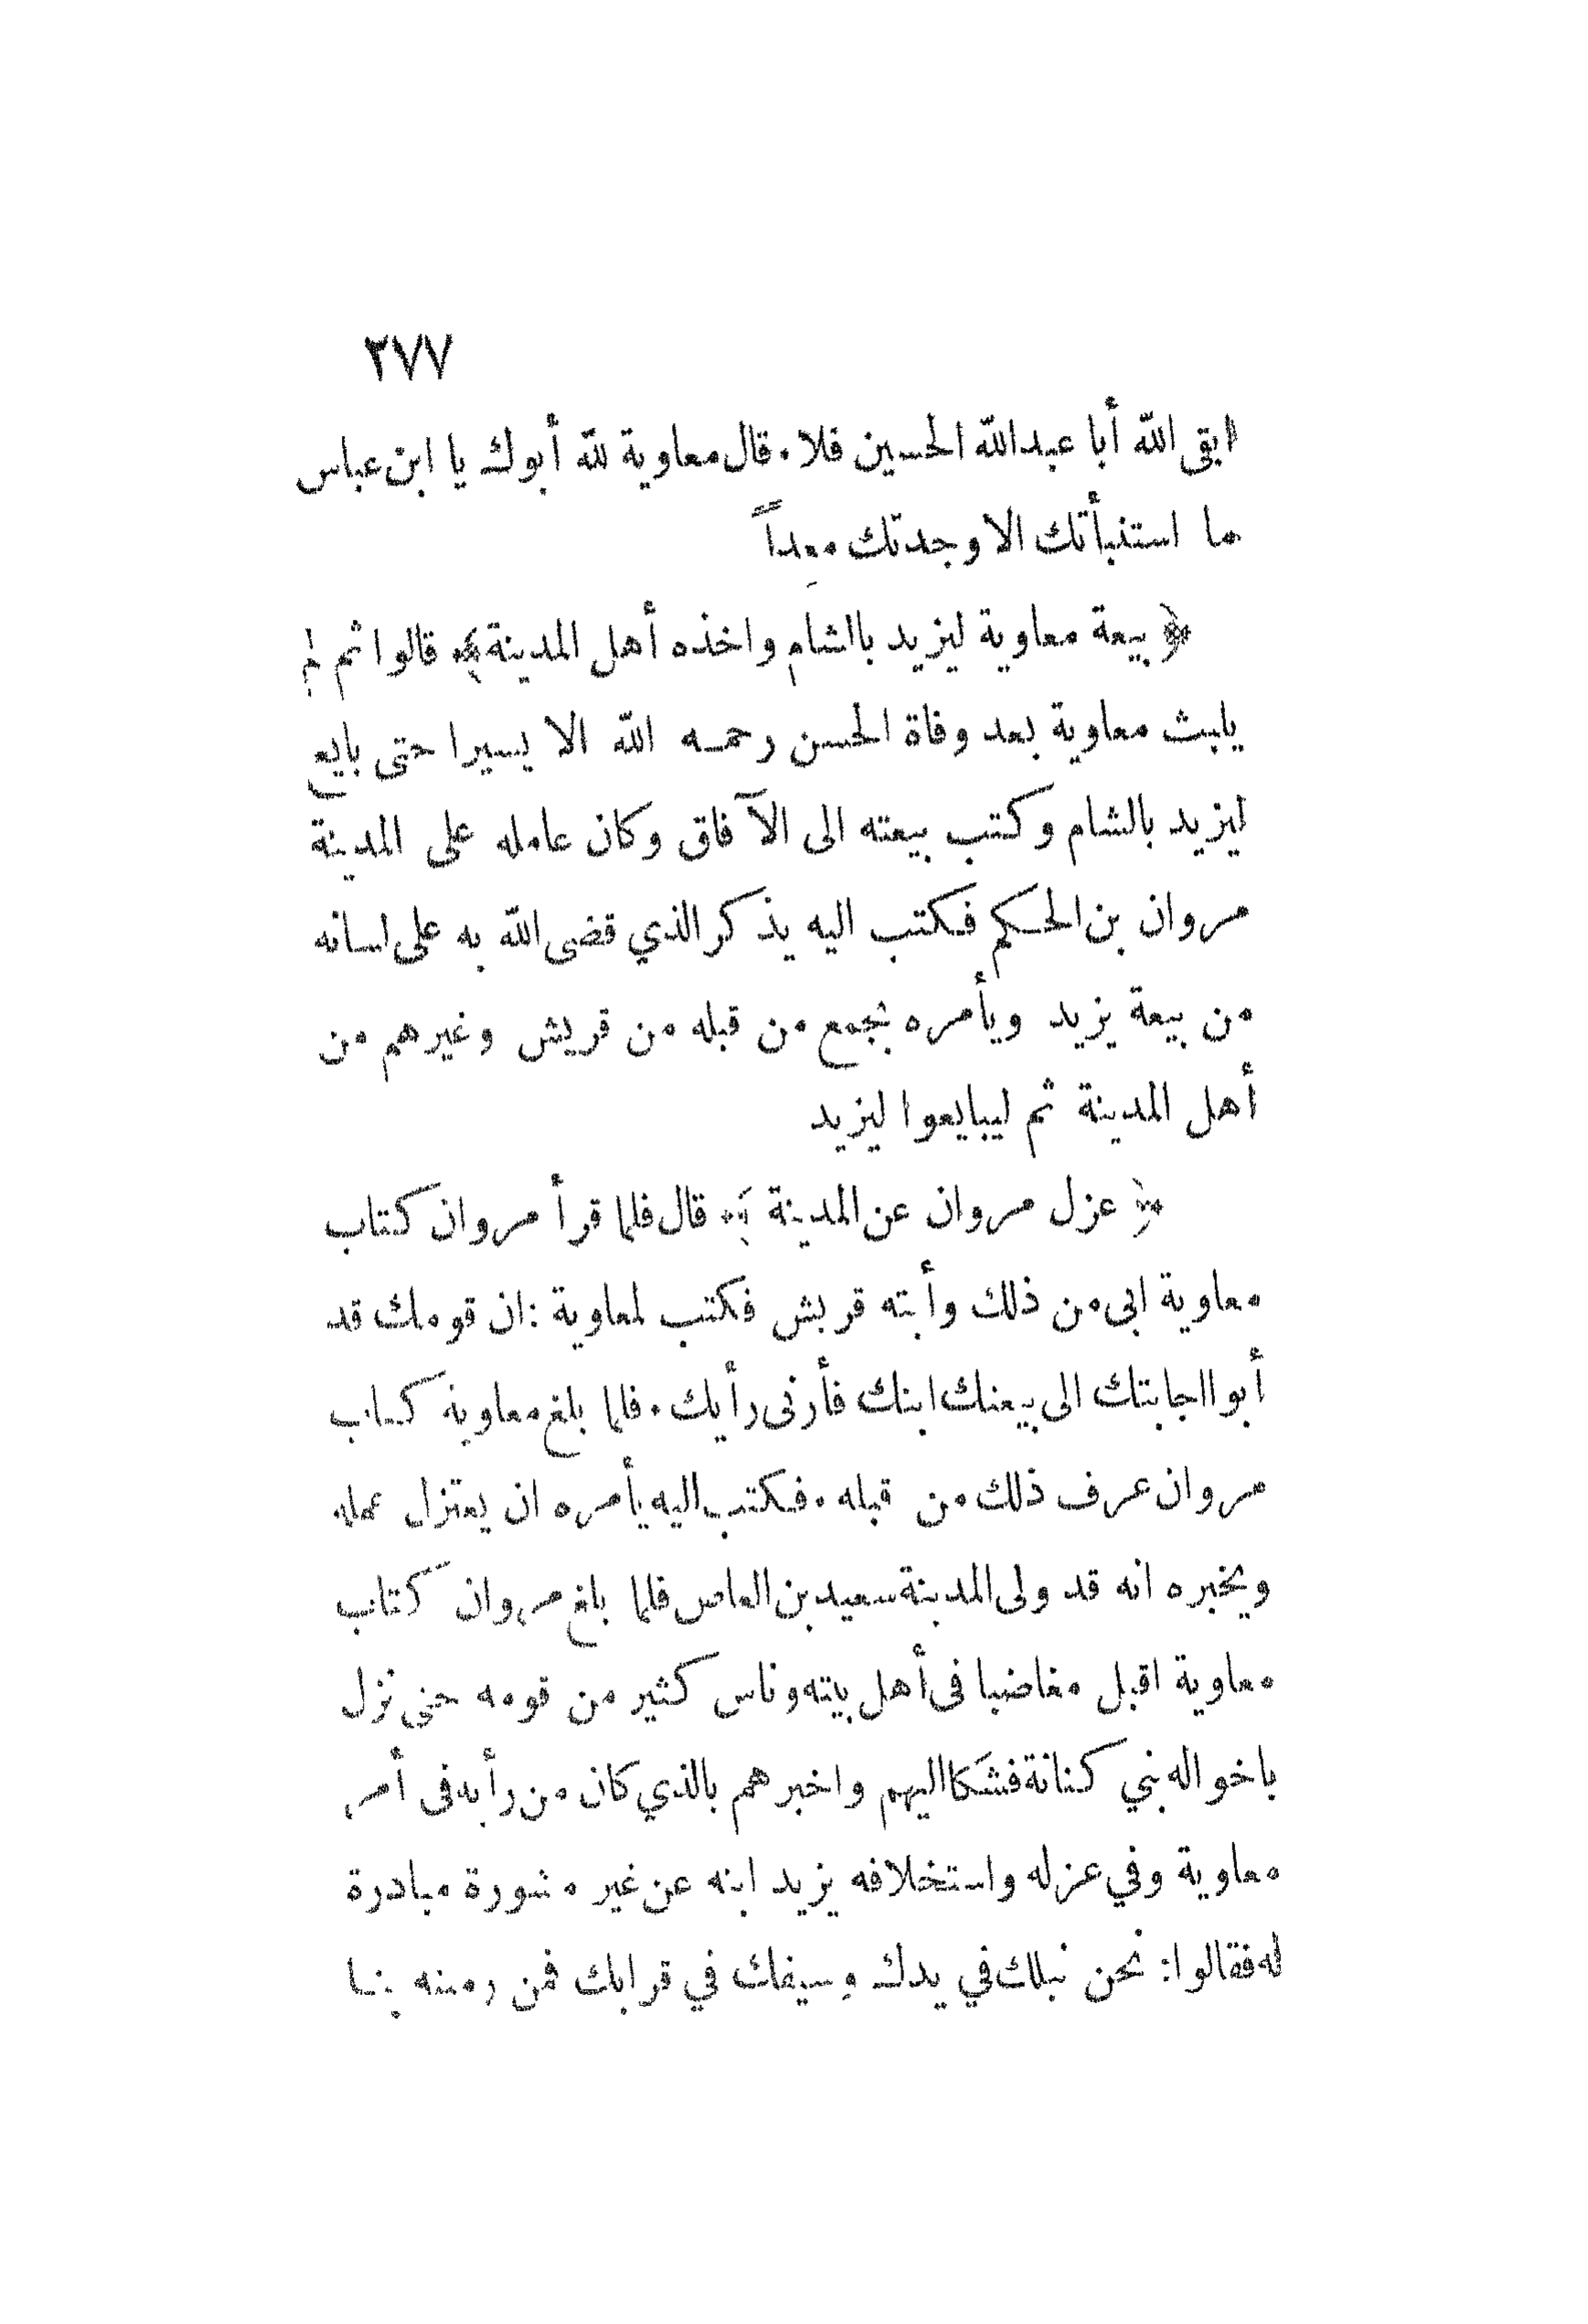 ٢٧٧
ابقى الله أبا عبدالله الحسين فلا. قال معاوية لله أبوك يا ابن عباس
ما استنبأتك الا وجدتك معداً
﴿ بيعة معاوية ليزيد بالشام واخذه أهل المدينة ﴾ قالوا ثم لم
يلبث معاوية بعد وفاة الحسن رحمه الله الا يسيرا حتى بايع
ليزيد بالشام وكتب بيعته الى الآفاق وكان عامله على المدينة
مروان بن الحكم فكتب اليه يذكر الذي قضى الله به على لسانه
من بيعة يزيد ويأمره بجمع من قبله من قريش وغيرهم من
أهل المدينة ثم ليبايعوا ليزيد
﴿ عزل مروان عن المدينة ﴾ قال فلما قرأ مروان كتاب
معاوية ابى من ذلك وأبته قريش فكتب لمعاوية : ان قومك قد
أبوا اجابتك الى بيعتك ابنك فأرنى رأيك. فلما بلغ معاوية كتاب
مروان عرف ذلك من قبله. فكتب اليه يأمره ان يعتزل عمله
ويخبره انه قد ولى المدينة سعيد بن العاص فلما بلغ مروان كتاب
معاوية اقبل مغاضبا فى أهل بيته وناس كثير من قومه حتى نزل
باخواله بني كنانة فشكا اليهم واخبرهم بالذي كان من رأيه فى أمر
معاوية وفي عزله واستخلافه يزيد ابنه عن غير مشورة مبادرة
له فقالوا: نحن نبلك في يدك وسيفك في قرابك فمن رميته بنا